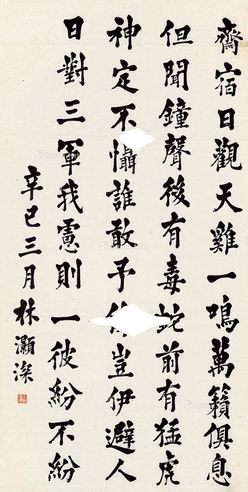 齋宿日觀天雞一鳴萬籟俱息
但聞鐘聲後有毒蛇前有猛虎
神定不懾誰敢予侮豈伊避人
日對三軍我慮則一彼紛不紛
辛巳三月林灝深